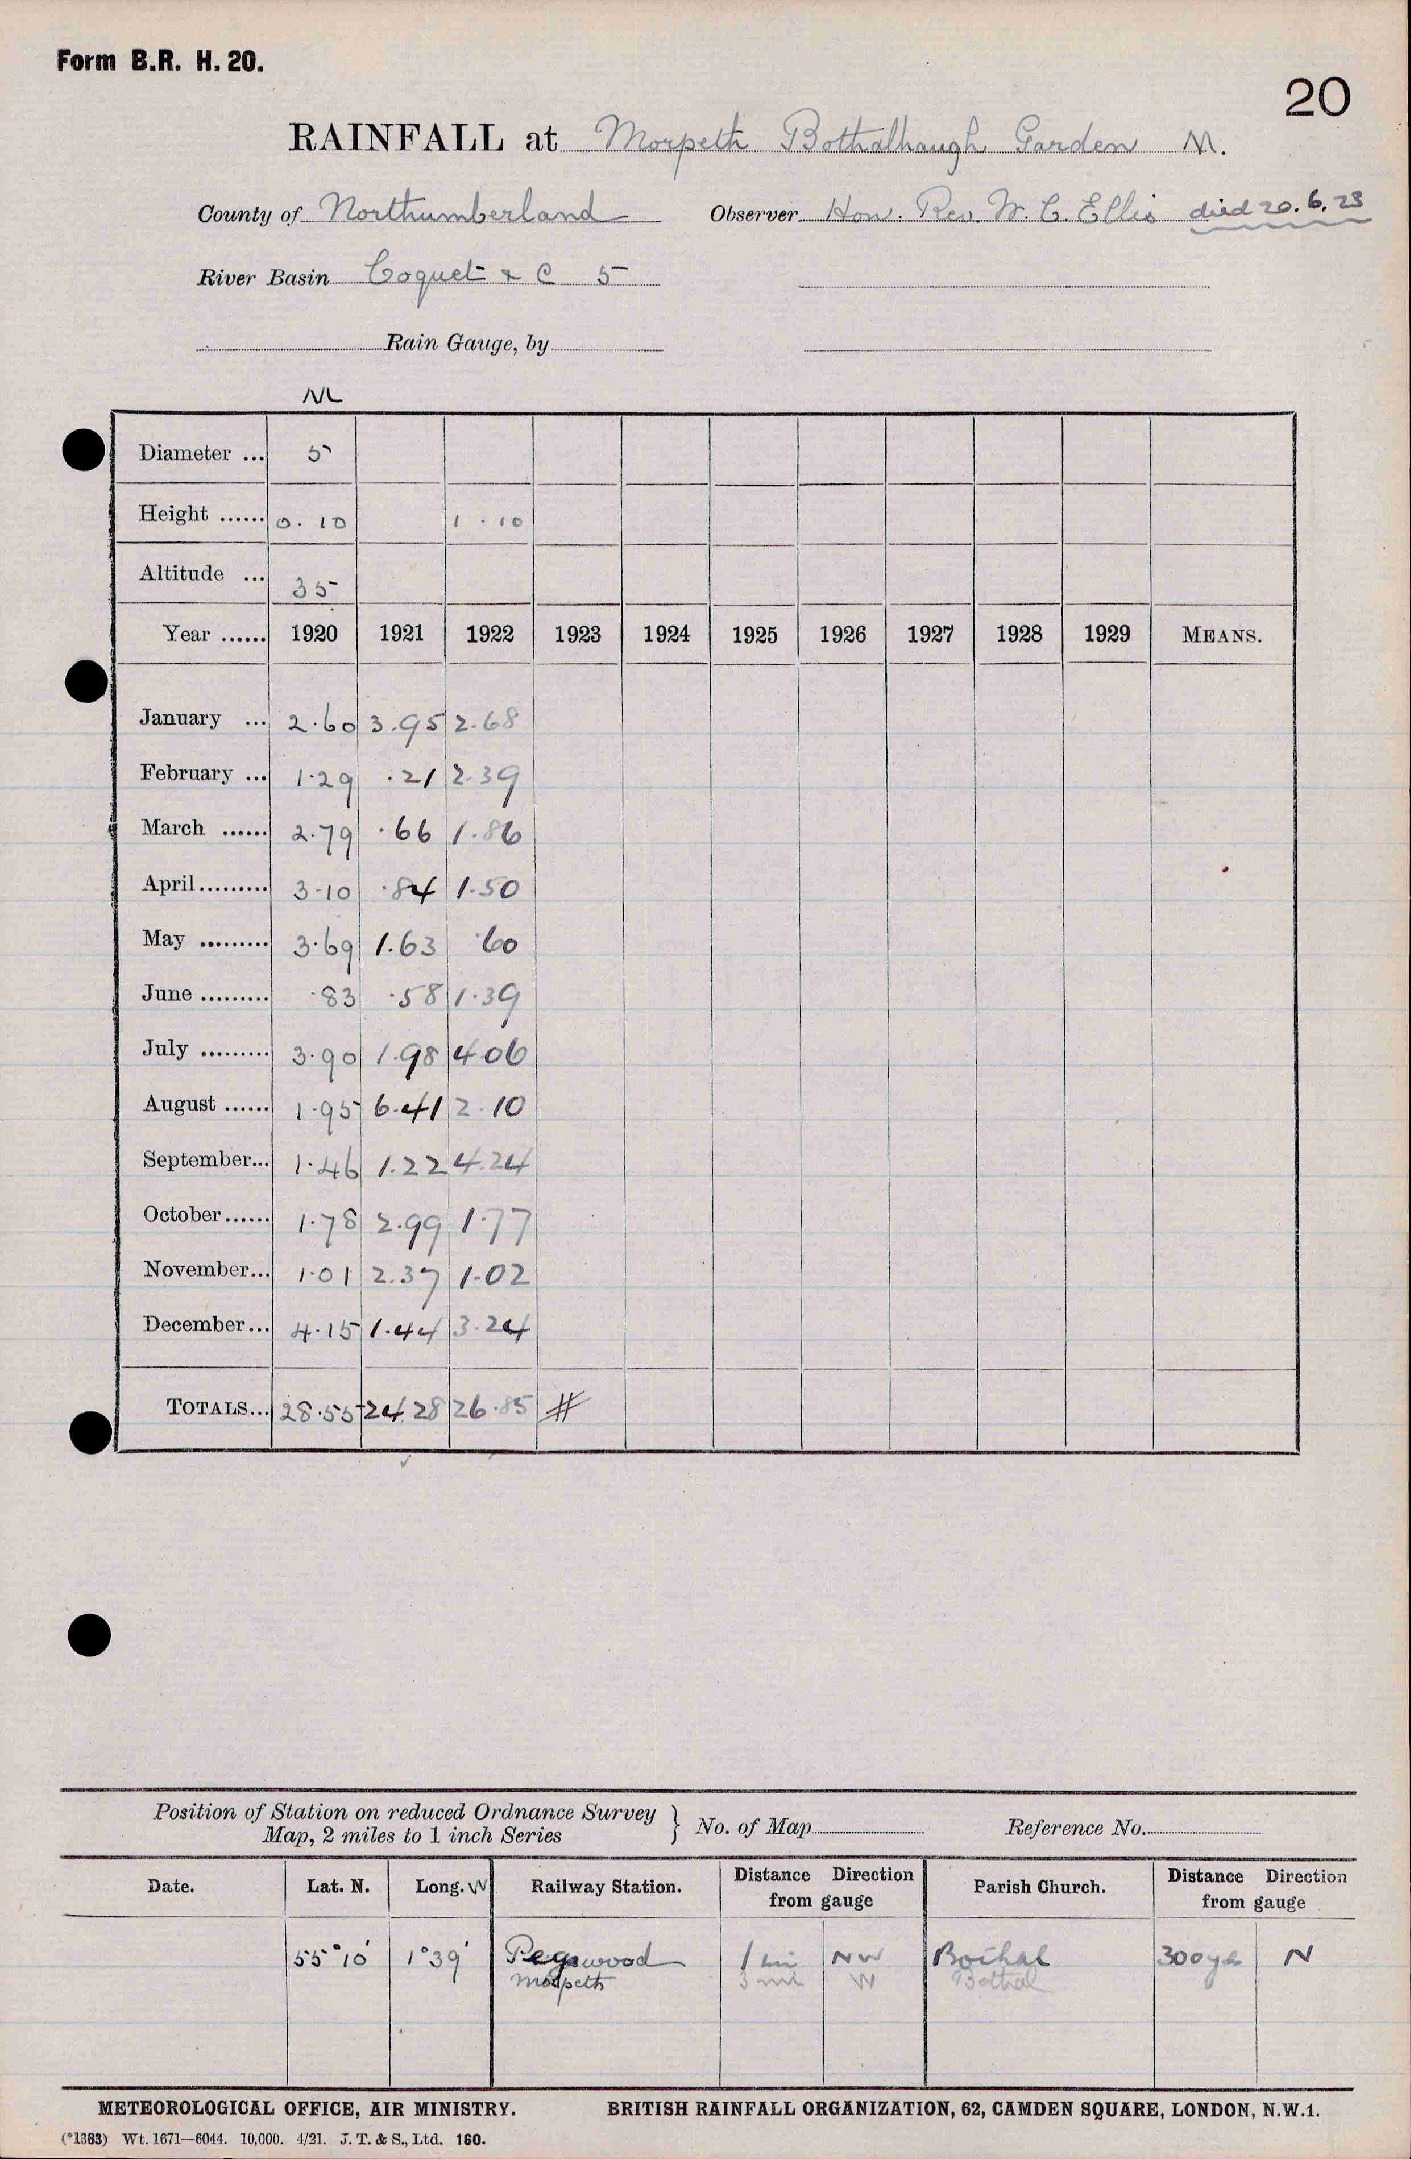 Form B.R. H. 20.
20
RAINFALL at Morpeth Bothalhaugh Garden M.
County of Northumberland Observer Hon. Rev. W. C. Ellis died 20.6.23
River Basin Coquet & C 5
Rain Gauge, by
M
Diameter ... 5
Height ...... 0.10 1.10
Altitude ... 35
Year ...... 1920 1921 1922 1923 1924 1925 1926 1927 1928 1929 MEANS.
January ... 2.60 3.95 2.68
February ... 1.29 .21 2.39
March ...... 2.79 .66 1.86
April ......... 3.10 .84 1.50
May ......... 3.69 1.63 .60
June ......... .83 .58 1.39
July ......... 3.90 1.98 4.06
August ...... 1.95 6.41 2.10
September... 1.46 1.22 4.24
October ...... 1.78 2.99 1.77
November... 1.01 2.37 1.02
December... 4.15 1.44 3.24
TOTALS... 28.55 24.28 26.85 #
Position of Station on reduced Ordnance Survey
Map, 2 miles to 1 inch Series } No. of Map Reference No.
Date. Lat. N. Long. W Railway Station. Distance Direction from gauge Parish Church. Distance Direction from gauge
55°10' 1°39' Pegswood 1 mi NW Bothal 300 yds N
Morpeth 3 mi W Bothal
METEOROLOGICAL OFFICE, AIR MINISTRY. BRITISH RAINFALL ORGANIZATION, 62, CAMDEN SQUARE, LONDON, N.W.1.
(*1383) Wt. 1671—6044. 10,000. 4/21. J. T. & S., Ltd. 160.